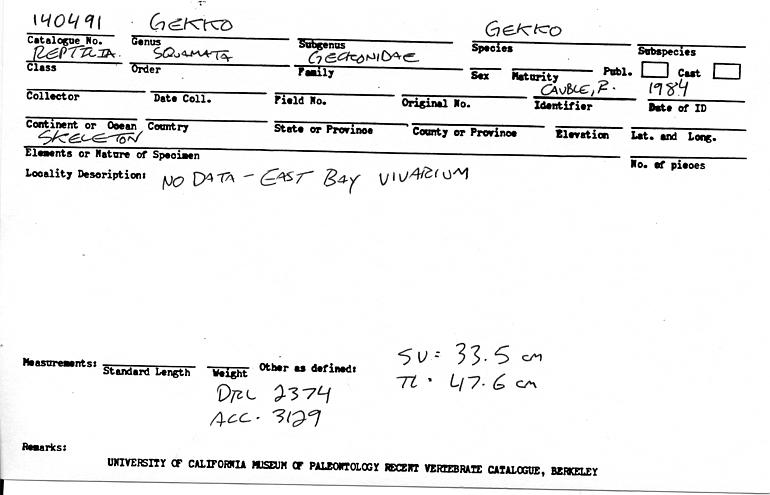 140491 GEKKO GEKKO
Catalogue No. Genus Subgenus Species Subspecies
REPTILIA. SQUAMATA GECKONIDAE
Class Order Family Sex Maturity Publ. Cast
CAUBLE, R. 1984
Collector Date Coll. Field No. Original No. Identifier Date of ID
Continent or Ocean Country State or Province County or Province Elevation Lat. and Long.
SKELETON
Elements or Nature of Specimen No. of pieces
Locality Description: NO DATA - EAST BAY VIVARIUM
SV = 33.5 cm
Measurements: Standard Length Weight Other as defined:
TL = 47.6 cm
DRL 2374
ACC. 3129
Remarks:
UNIVERSITY OF CALIFORNIA MUSEUM OF PALEONTOLOGY RECENT VERTEBRATE CATALOGUE, BERKELEY